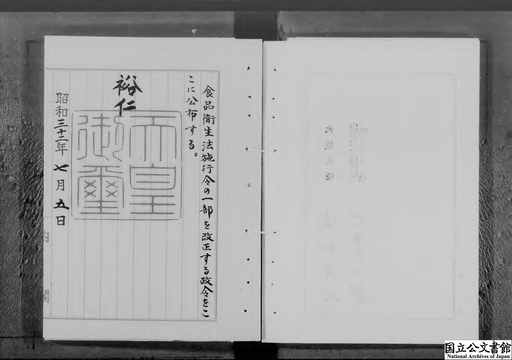 食品衛生法施行令の一部を改正する政令をこ
こに公布する。
裕仁
天皇
御璽
昭和三十二年七月五日
大蔵大臣
国立公文書館
National Archives of Japan